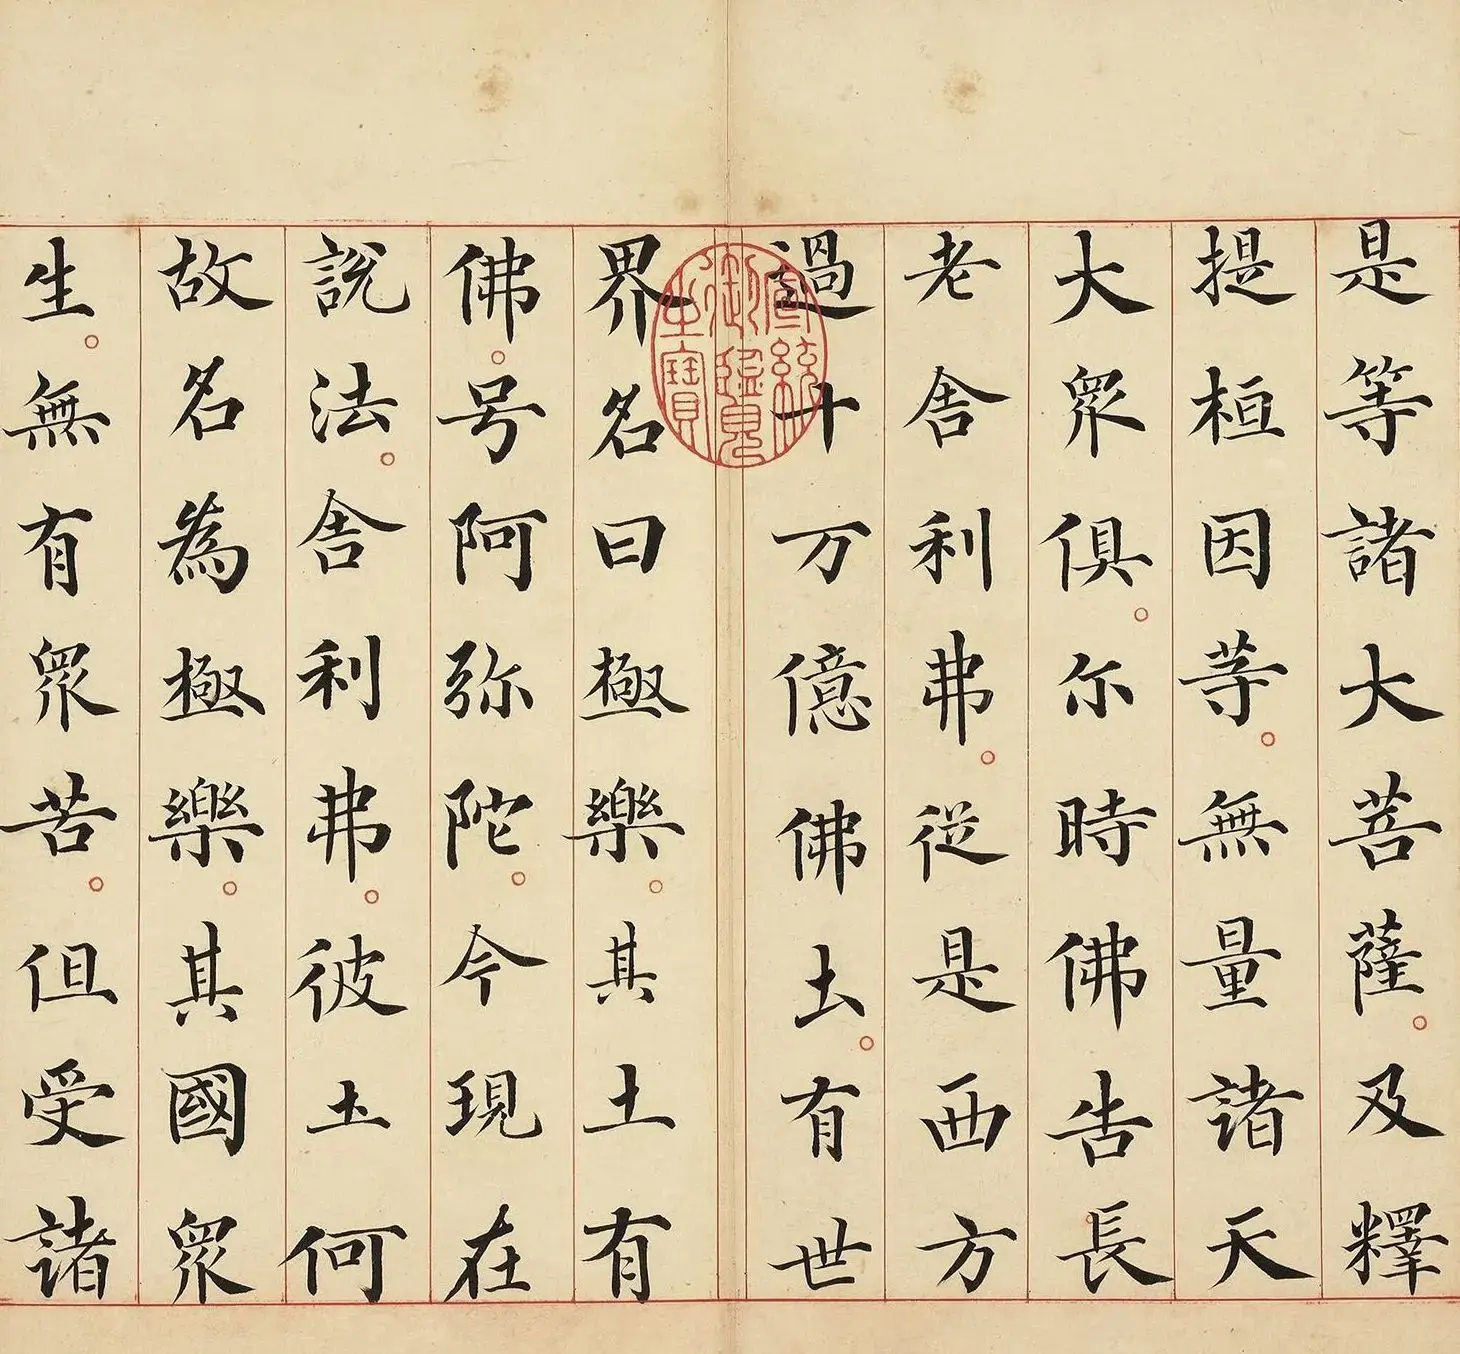 是等諸大菩薩。及釋
提桓因等。無量諸天
大衆俱。尓時佛告長
老舎利弗。從是西方
過十万億佛土。有世
界名曰極樂。其土有
佛。号阿弥陀。今現在
說法。舎利弗。彼土何
故名為極樂。其國衆
生。無有衆苦。但受諸
宣統御覽之寶